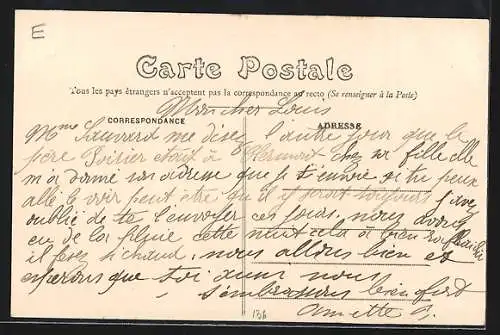 E
Carte Postale
Tous les pays étrangers n'acceptent pas la correspondance au recto (Se renseigner à la Poste)
Mon cher Louis
CORRESPONDANCE
ADRESSE
Mme Sauvard me disez l'autre jour que le
père Poirier etait à chez sa fille elle
m'a donné son adresse que je t'envoie si tu peux
allé le voir peut etre que il y serait toujours j'avez
oublié de te l'envoyer ces jours, nous avons
eu de la pluie cette nuit cela a bien rafraichi
il fesez si chaud, nous allons bien et
esperons que toi aussi nous
t'embrassons bien fort
Annette
136